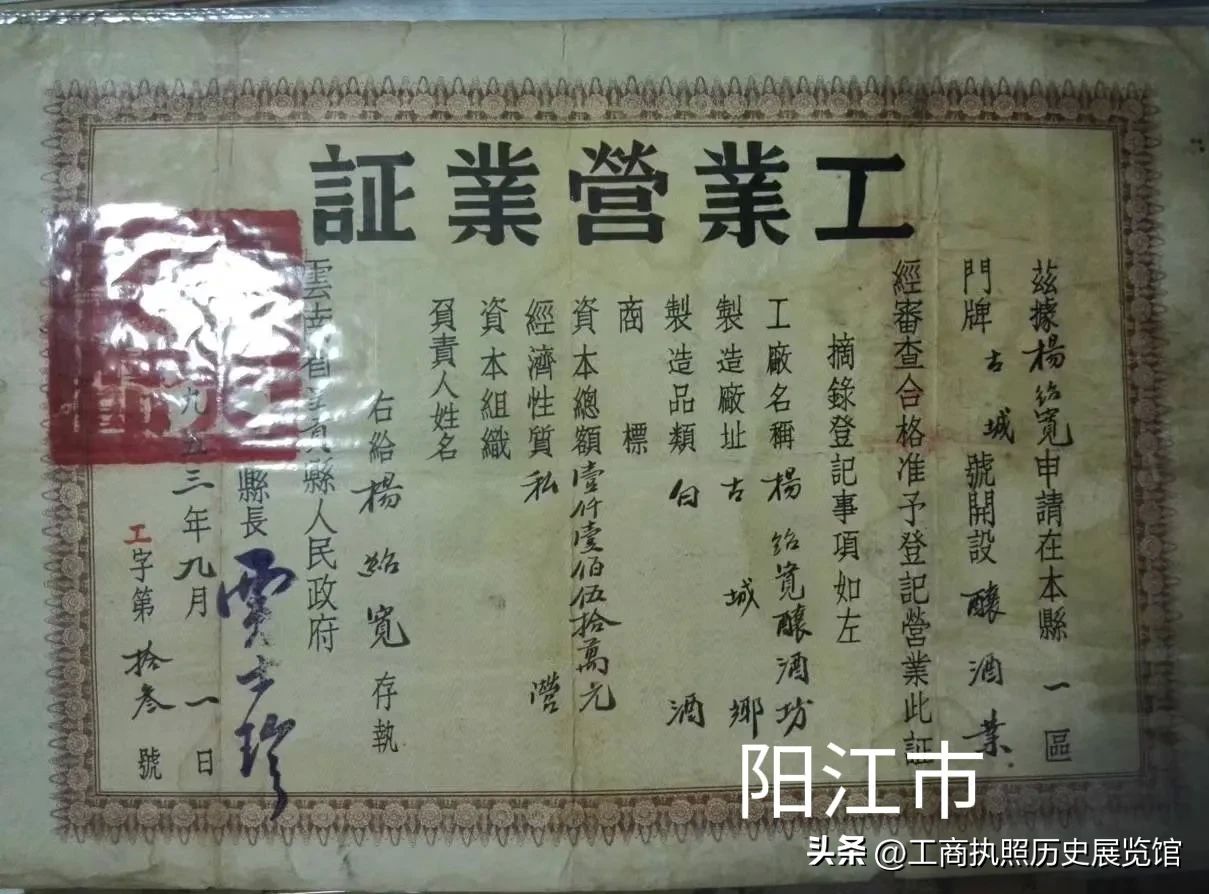 工業營業証
茲據楊紹寬申請在本縣一區
門牌古城號開設釀酒業
經審查合格准予登記營業此証
摘錄登記事項如左
工廠名稱楊紹寬釀酒坊
製造廠址古城鄉
製造品類白酒
商標
資本總額壹仟壹佰伍拾萬元
經濟性質私營
資本組織
負責人姓名
右給楊紹寬存執
雲南省 縣人民政府
縣長
九五三年九月一日
工字第拾叁號
阳江市
头条 @工商执照历史展览馆